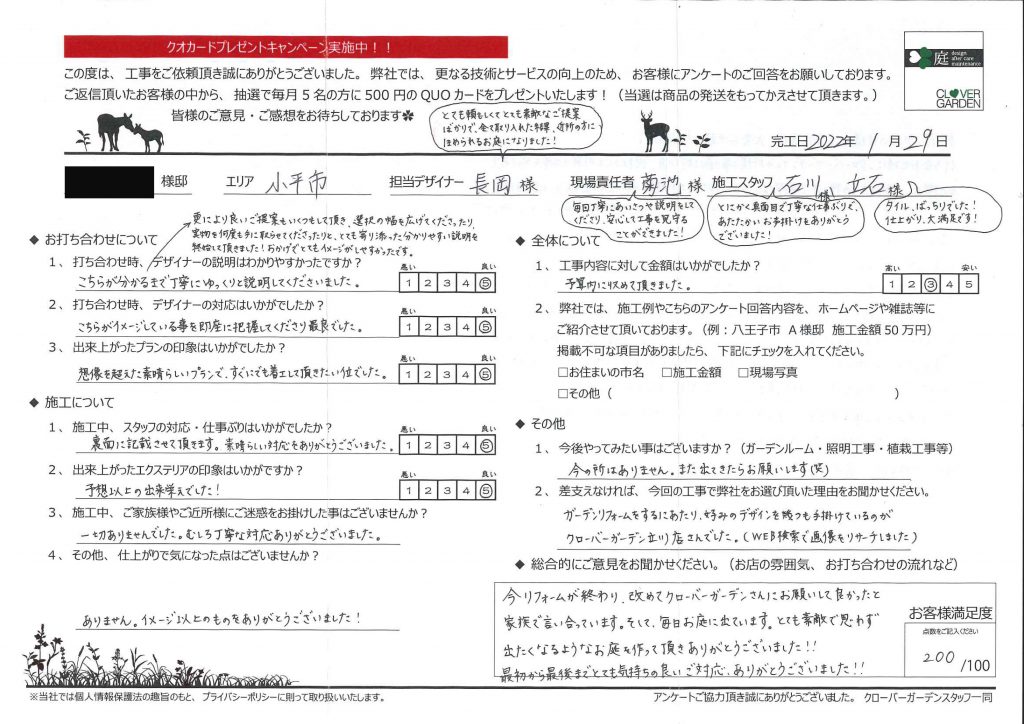 クオカードプレゼントキャンペーン実施中！！
この度は、工事をご依頼頂き誠にありがとうございました。弊社では、更なる技術とサービスの向上のため、お客様にアンケートのご回答をお願いしております。
ご返信頂いたお客様の中から、抽選で毎月５名の方に500円のQUOカードをプレゼントいたします！（当選は商品の発送をもってかえさせて頂きます。）
皆様のご意見・ご感想をお待ちしております✿
庭 design after care maintenance
CLOVER GARDEN
とても頼もしくてとても素敵なご提案
ばかりで、全て取り入れた結果、近所の方に
ほめられるお庭になりました！
完工日2022年 1月29日
様邸 エリア 小平市 担当デザイナー 長岡様 現場責任者 菊池様 施工スタッフ 石川(様) 立石様
毎日丁寧にあいさつや説明をして
くださり、安心して工事を見守る
ことができました！
とにかく真面目で丁寧な仕事ぶりで、
あたたかいお手掛けをありがとう
ございました！
タイル、ばっちりでした！
仕上がり、大満足です！
更により良いご提案もいくつもして頂き、選択の幅を広げてくださったり、
実物を何度も手に取らせてくださったりと、とても寄り添った分かりやすい説明を
終始して頂きました！おかげでとてもイメージがしやすかったです。
◆ お打ち合わせについて
1、打ち合わせ時、デザイナーの説明はわかりやすかったですか？
悪い 良い
こちらが分かるまで丁寧にゆっくりと説明してくださいました。
1 2 3 4 ⑤
2、打ち合わせ時、デザイナーの対応はいかがでしたか？
悪い 良い
こちらがイメージしている事を即座に把握してくださり最良でした。
1 2 3 4 ⑤
3、出来上がったプランの印象はいかがでしたか？
悪い 良い
想像を超えた素晴らしいプランで、すぐにでも着工して頂きたい位でした。
1 2 3 4 ⑤
◆ 施工について
1、施工中、スタッフの対応・仕事ぶりはいかがでしたか？
悪い 良い
裏面に記載させて頂きます。素晴らしい対応をありがとうございました。
1 2 3 4 ⑤
2、出来上がったエクステリアの印象はいかがですか？
悪い 良い
予想以上の出来栄えでした！
1 2 3 4 ⑤
3、施工中、ご家族様やご近所様にご迷惑をお掛けした事はございませんか？
一切ありませんでした。むしろ丁寧な対応ありがとうございました。
4、その他、仕上がりで気になった点はございませんか？
ありません。イメージ以上のものをありがとうございました！
◆ 全体について
1、工事内容に対して金額はいかがでしたか？
高い 安い
予算内に収めて頂きました。
1 2 ③ 4 5
2、弊社では、施工例やこちらのアンケート回答内容を、ホームページや雑誌等に
ご紹介させて頂いております。（例：八王子市 A様邸 施工金額50万円）
掲載不可な項目がありましたら、下記にチェックを入れてください。
□お住まいの市名 □施工金額 □現場写真
□その他（ ）
◆ その他
1、今後やってみたい事はございますか？（ガーデンルーム・照明工事・植栽工事等）
今の所はありません。また出てきたらお願いします(笑)
2、差支えなければ、今回の工事で弊社をお選び頂いた理由をお聞かせください。
ガーデンリフォームをするにあたり、好みのデザインを幾つも手掛けているのが
クローバーガーデン立川店さんでした。(WEB検索で画像をリサーチしました)
◆ 総合的にご意見をお聞かせください。（お店の雰囲気、お打ち合わせの流れなど）
今リフォームが終わり、改めてクローバーガーデンさんにお願いして良かったと
家族で言い合っています。そして、毎日お庭に出ています。とても素敵で思わず
出たくなるようなお庭を作って頂きありがとうございました！！
最初から最後までとても気持ちの良いご対応、ありがとうございました！！
お客様満足度
点数をご記入ください
200 /100
※当社では個人情報保護法の趣旨のもと、プライバシーポリシーに則って取り扱いいたします。
アンケートご協力頂き誠にありがとうございました。クローバーガーデンスタッフ一同